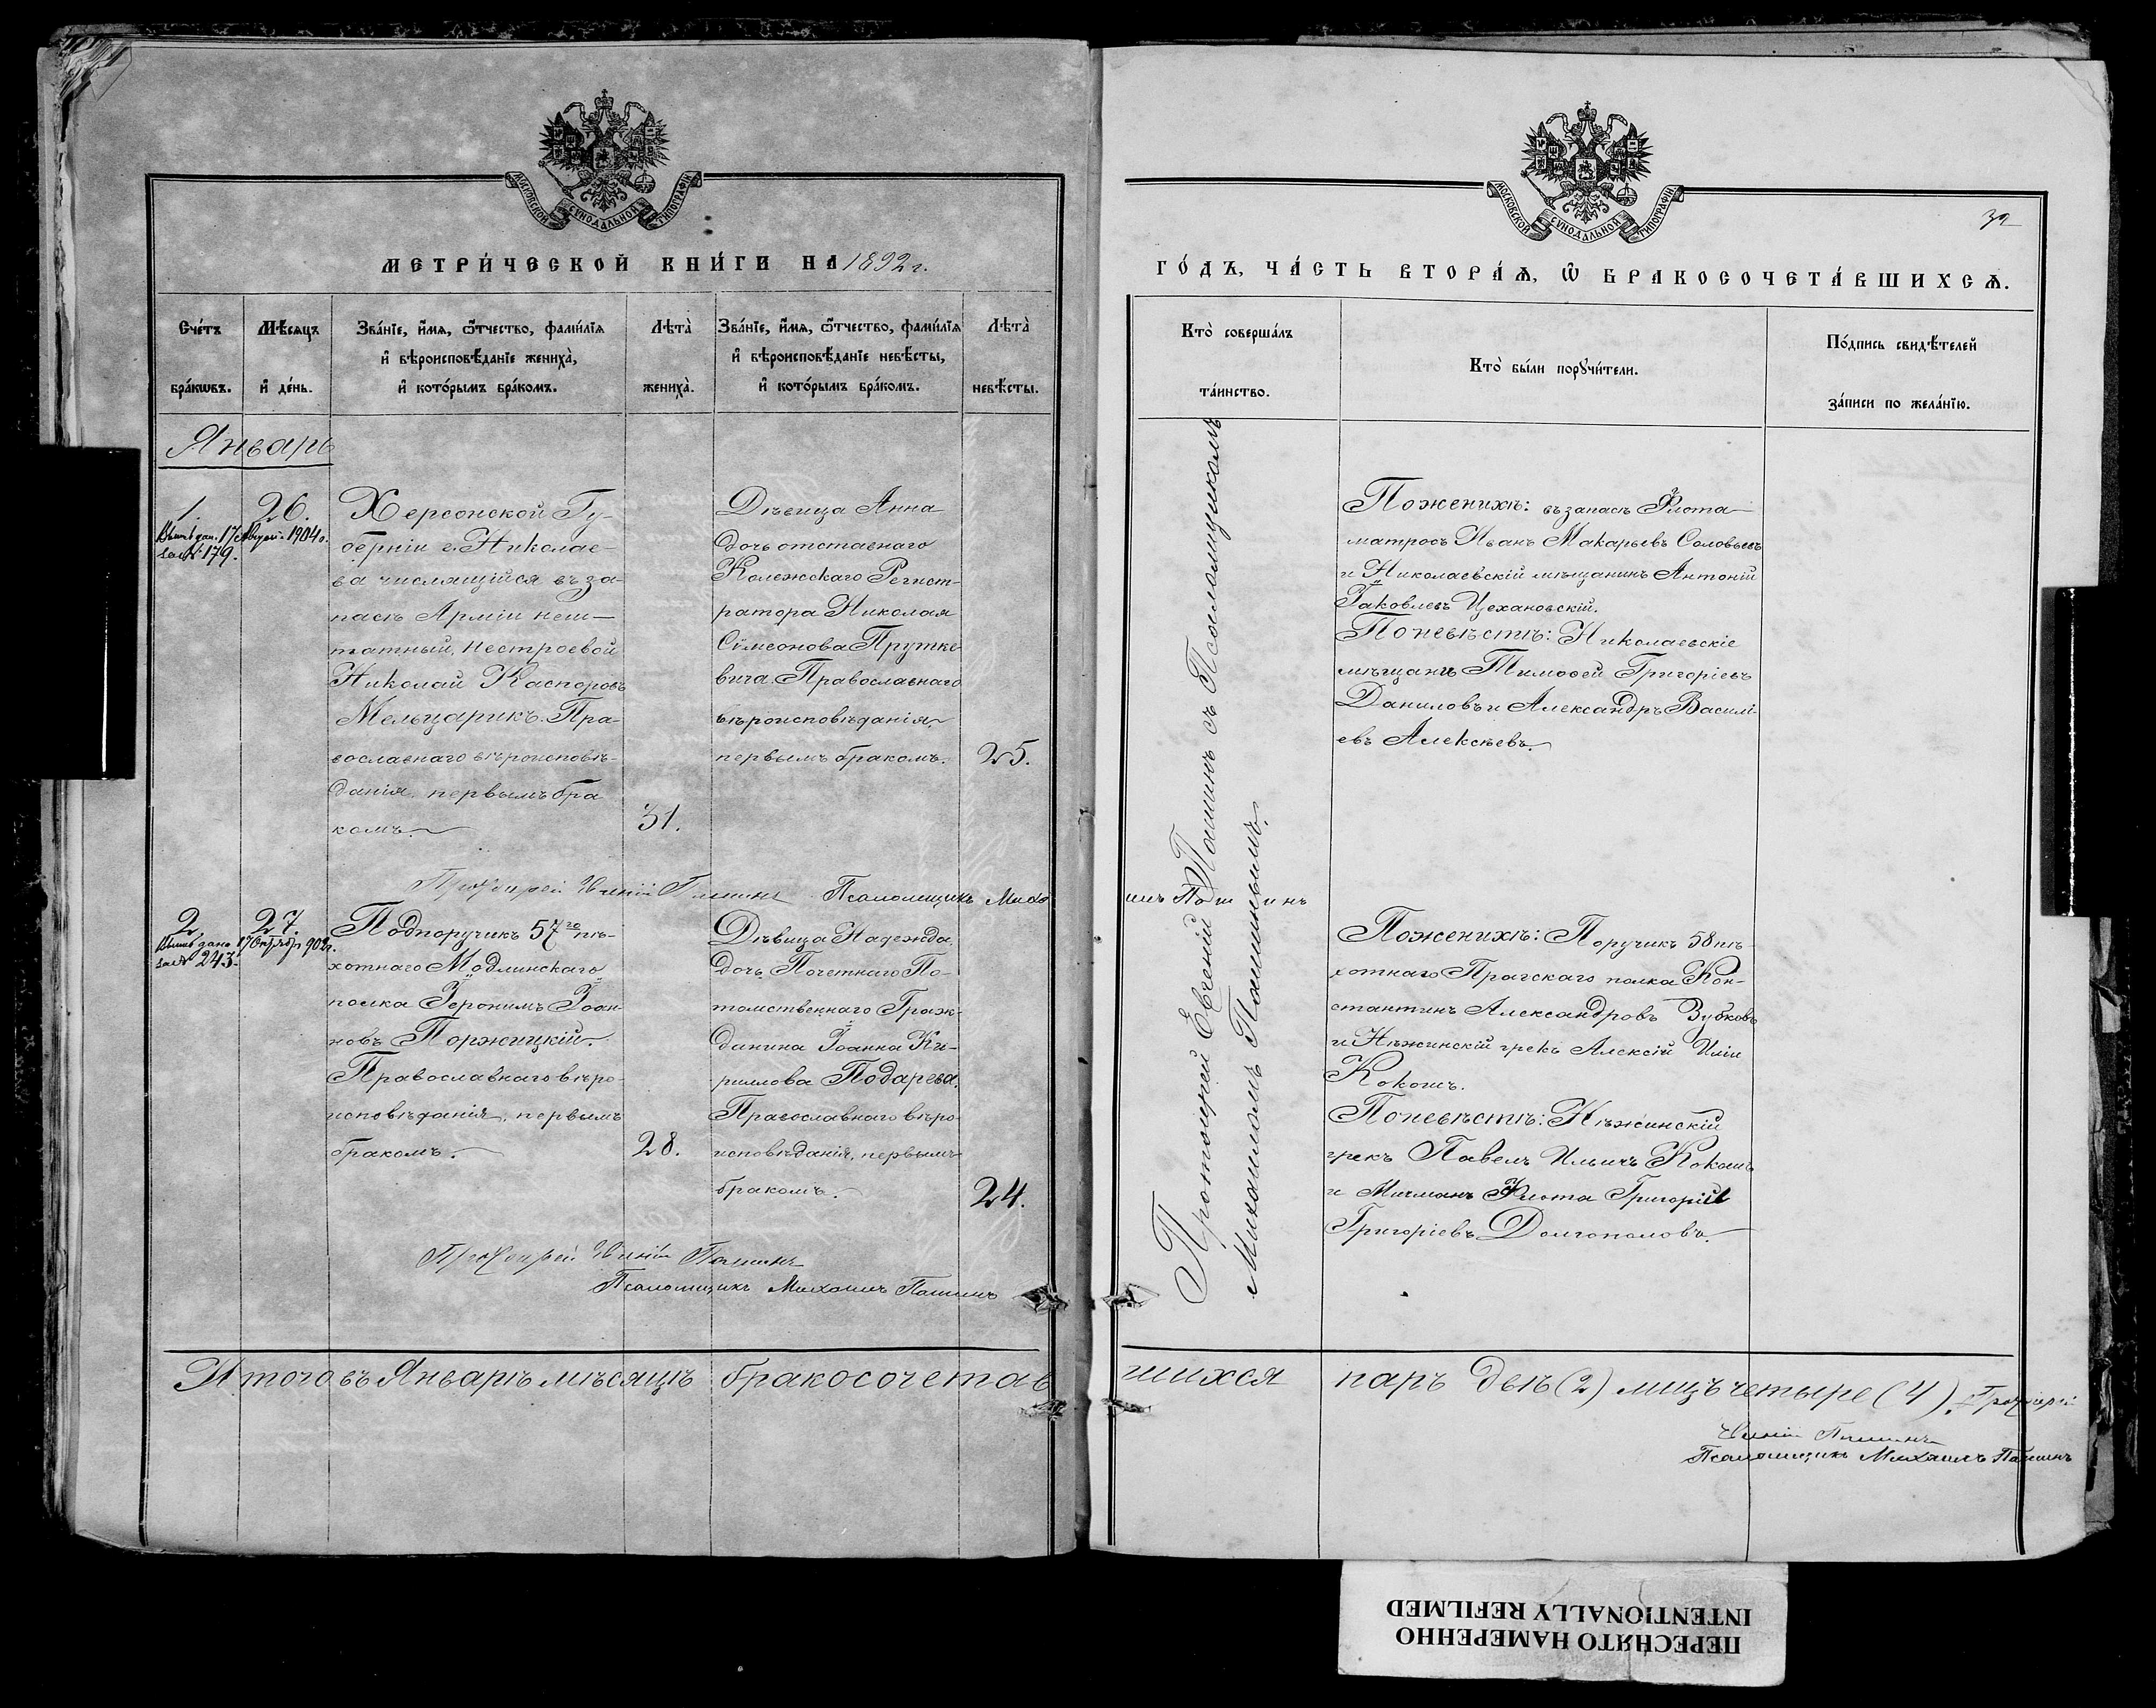 МОСКОВСКОЙ СѴНОДАЛЬНОЙ ТИПОГРАФІИ
МЕТРИ́ЧЕСКОЙ КНИ́ГИ НА 1892 г.
Сче́тъ бра́кѡвъ.
Мѣ́сяцъ и҆ де́нь.
Зва́нїе, и҆́мя, ѻ҆́тчество, фами́лїя и҆ вѣроисповѣ́данїе жениха̀, и҆ кото́рымъ бра́комъ.
Лѣта̀ жениха̀.
Зва́нїе, и҆́мя, ѻ҆́тчество, фами́лїя и҆ вѣроисповѣ́данїе невѣ́сты, и҆ кото́рымъ бра́комъ.
Лѣта̀ невѣ́сты.
Январь
1.
26.
за № 179.
Херсонской Гу-
берніи г. Николае-
ва числящійся въ за-
пасѣ Арміи неш-
татный, нестроевой
Николай Каспоровъ
Мельцарикъ. Пра-
вославнаго вѣроисповѣ-
данія, первымъ бра
комъ.
31.
Дѣвица Анна
дочь отставнаго
Колежскаго Регист-
ратора Николая
Сѵмеонова Прутке-
вича. Православнаго
вѣроисповѣданія,
первымъ бракомъ.
25.
Протоіерей Евгеній Пашинъ Псаломщикъ Миха
2.
27.
за № 243.
Подпоручикъ 57го пѣ-
хотнаго Модлинскаго
полка Іеронимъ Іоан-
новъ Поржицкій.
Православнаго вѣро-
исповѣданія, первымъ
бракомъ.
28.
Дѣвица Надежда,
дочь Почетнаго По-
томственнаго Граж-
данина Іоанна Ки-
риллова Подарева.
Православнаго вѣро-
исповѣданія, первымъ
бракомъ.
24.
Протоіерей Евгеній Пашинъ
Псаломщикъ Михаилъ Пашинъ
Итого въ Январѣ мѣсяцѣ бракосочетав
МОСКОВСКОЙ СѴНОДАЛЬНОЙ ТИПОГРАФІИ
32
ГО́ДЪ, ЧА́СТЬ ВТОРА́Ѧ, Ѡ҆ БРАКОСОЧЕТА́ВШИХСѦ.
Кто̀ соверша́лъ та́инство.
Кто̀ бы́ли порꙋчи́тели.
По́дпись свидѣ́телей за́писи по жела́нїю.
Протоіерей Евгеній Пашинъ съ Псаломщикомъ
Михаиломъ Пашинымъ.
илъ Пашинъ
По женихѣ: въ запасѣ Флота
матросъ Иванъ Макарьевъ Соловьевъ
и Николаевскій мѣщанинъ Антоній
Іаковлевъ Цехановскій.
По невѣстѣ: Николаевскіе
мѣщане Тимоѳей Григоріевъ
Даниловъ и Александръ Василі-
евъ Алексѣевъ.
По женихѣ: Поручикъ 58 пѣ-
хотнаго Прагскаго полка Кон-
стантинъ Александровъ Зубковъ
и Нѣжинскій грекъ Алексій Иліи
Кокошъ.
По невѣстѣ: Нѣжинскій
грекъ Павелъ Ильичъ Кокошъ
и Мичманъ Флота Григорій
Григоріевъ Долгополовъ.
шихся паръ двѣ (2) лицъ четыре (4). Протоіерей
Евгеній Пашинъ
Псаломщикъ Михаилъ Пашинъ
INTENTIONALLY REFILMED
ПЕРЕСНЯТО НАМЕРЕННО